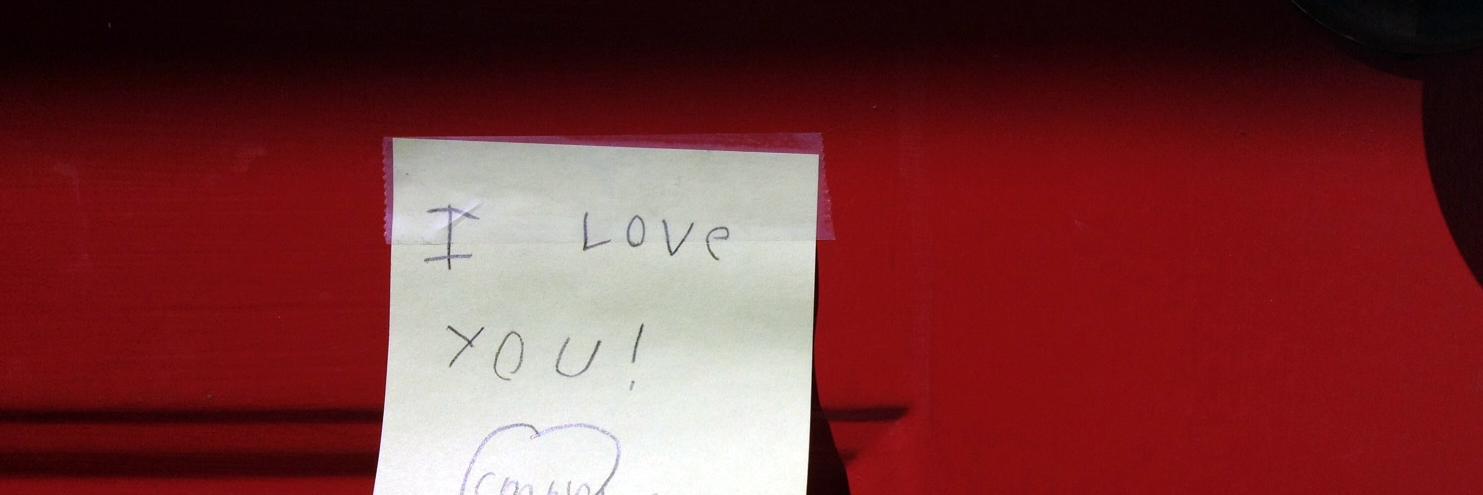 I LOVe
YOU!